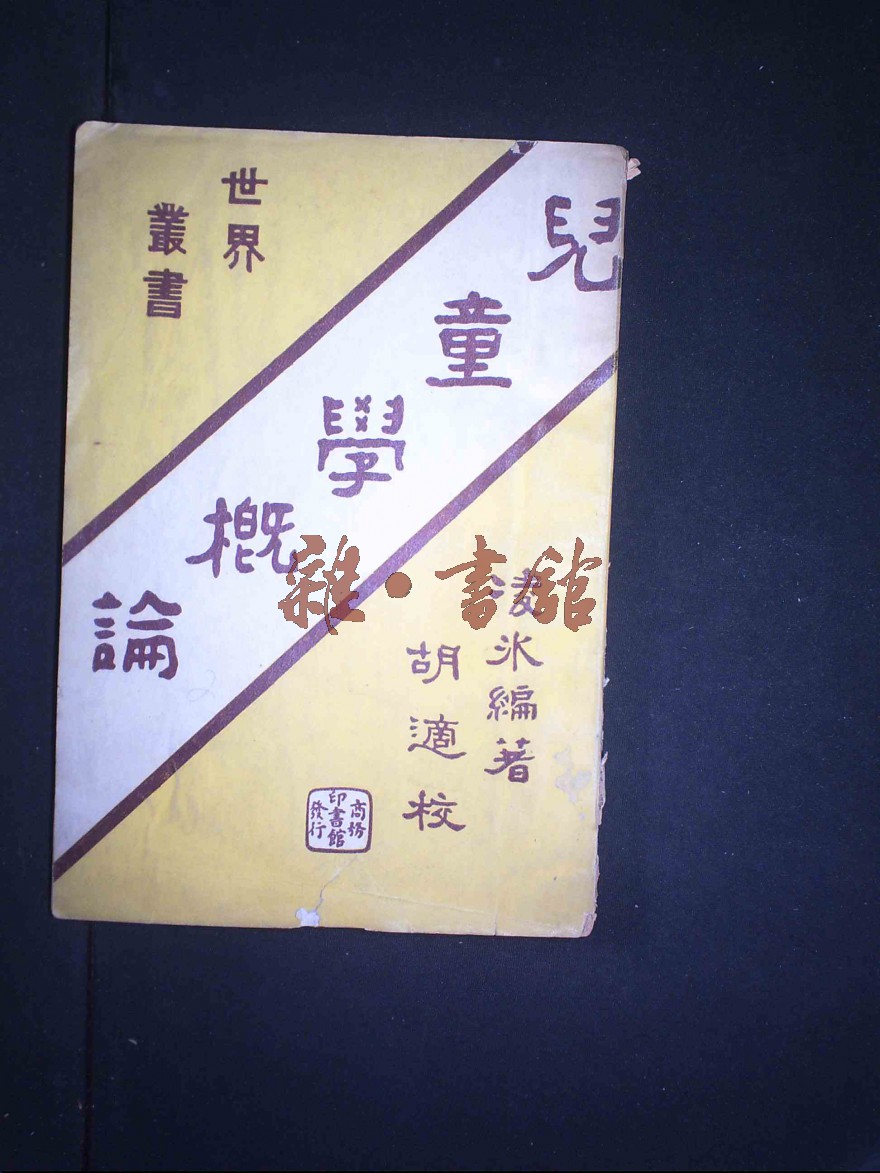 世界
叢書
兒童學概論
凌冰編著
胡適校
商務
印書館
發行
雜·書館